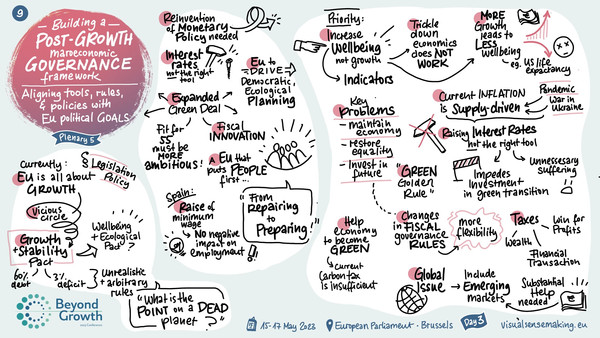 9
Building a
POST-GROWTH
macroeconomic
GOVERNANCE
framework
Aligning tools, rules,
& policies with
EU political GOALS
Plenary 5
Currently:
EU is all about
GROWTH
Legislation
Policy
Vicious
circle
Growth
+Stability
Pact
Wellbeing
+ Ecological
Pact?
60%
debt
3%
deficit
Unrealistic
+ arbitrary
rules
"What is the
POINT on a DEAD
planet?"
Beyond
Growth
Reinvention
of Monetary
Policy needed
Interest
rates
not the right
tool
EU to
DRIVE
Democratic,
Ecological
Planning
Expanded
Green Deal
Fit for
55
must be
MORE
ambitious!
Fiscal
INNOVATION
A EU that
puts PEOPLE
first...
Spain:
Raise of
minimum
wage
No negative
impact on
employment
"From
Repairing
to
Preparing"
Priority:
Increase
Wellbeing
not growth
Indicators
Trickle
down
economics
does NOT
WORK
MORE
Growth
leads to
LESS
wellbeing
eg. US life
expectancy
Key
Problems
- maintain
economy
- restore
equality
- Invest in
future
Current INFLATION
is Supply-driven
Pandemic
War in
Ukraine
Raising Interest Rates
not the right tool
Impedes
Investment
in green transition
Unnecessary
suffering
"GREEN
Golden
Rule"
Help
economy
to become
GREEN
Current
Carbon tax
is insufficient
Changes
in FISCAL
governance
RULES
more
flexibility
Taxes
Win for
Profits
Wealth
Financial
Transaction
Global
Issue
Include
Emerging
markets
Substantial
Help
needed
15-17 May 2023
European Parliament · Brussels
Day 3
visualsensemaking.eu